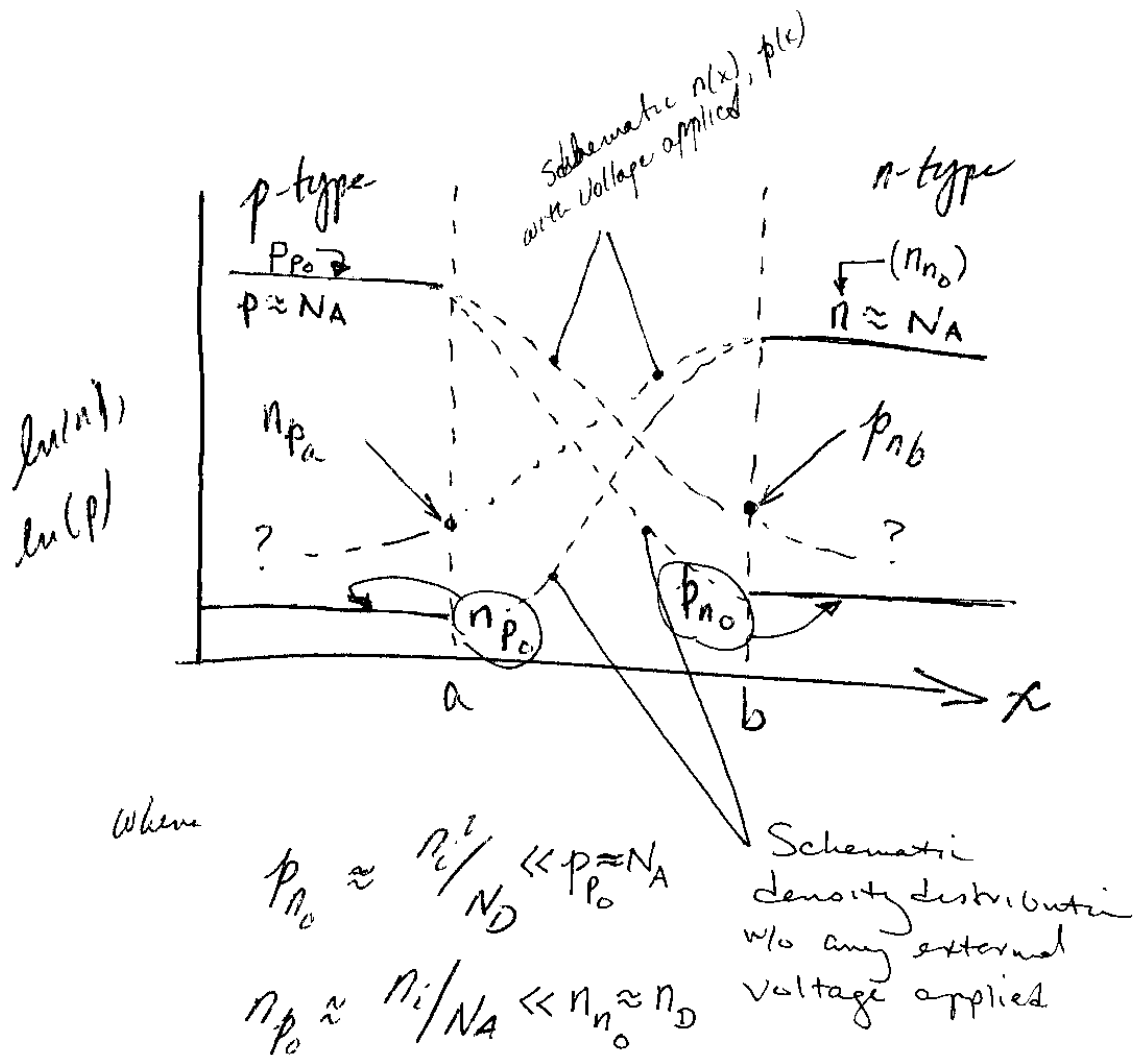 Schematic n(x), p(x)
with voltage applied
p-type
n-type
P_{p_0}
(n_{n_0})
p ≈ N_A
n ≈ N_A
ln(n),
ln(p)
n_{p_a}
p_{n_b}
?
?
n_{p_0}
p_{n_0}
a
b
x
where
p_{n_0} ≈ n_i^2/N_D << p_{p_0} ≈ N_A
n_{p_0} ≈ n_i/N_A << n_{n_0} ≈ n_D
Schematic
density distribution
w/o any external
voltage applied